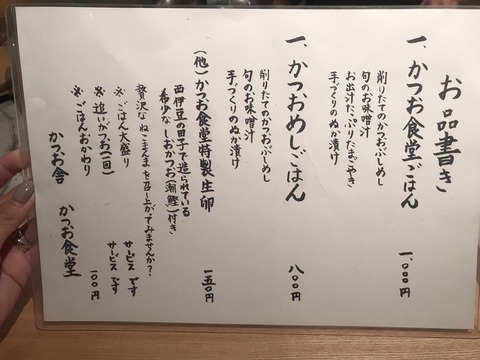 お品書き
一、かつお食堂ごはん 一、〇〇〇円
削りたてのかつおぶしめし
旬のお味噌汁
お出汁たっぷりたまごやき
手づくりのぬか漬け
一、かつおめしごはん 八〇〇円
削りたてのかつおぶしめし
旬のお味噌汁
手づくりのぬか漬け
(他)かつお食堂特製生卵 一五〇円
西伊豆の田子で造られている
希少なしおかつお(潮鰹)付き
贅沢なねこまんまを召し上がってみませんか?
※ごはん大盛り サービスです
※追いがつお(一回) サービスです
※ごはんおかわり 一〇〇円
かつお舎 かつお食堂